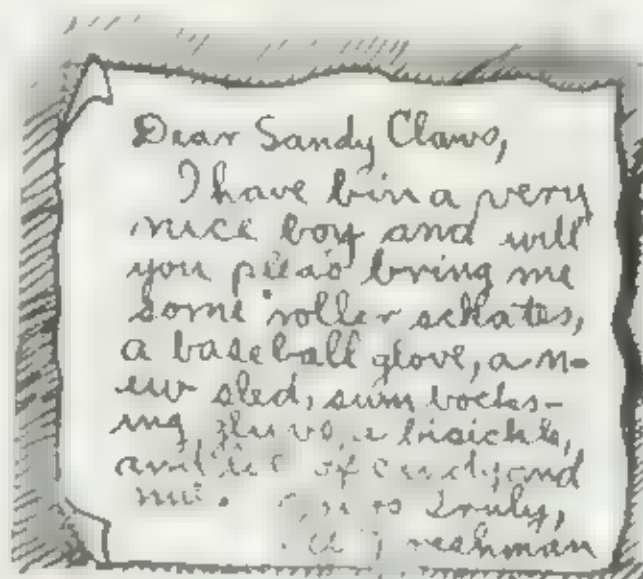 Dear Sandy Claws,
I have bin a very
nice boy and will
you pleas bring me
some roller schates,
a baseball glove, a n-
ew sled, sum bocks-
ing gluvs, a bisickle,
and lot of candy and
nuts.
Truly,